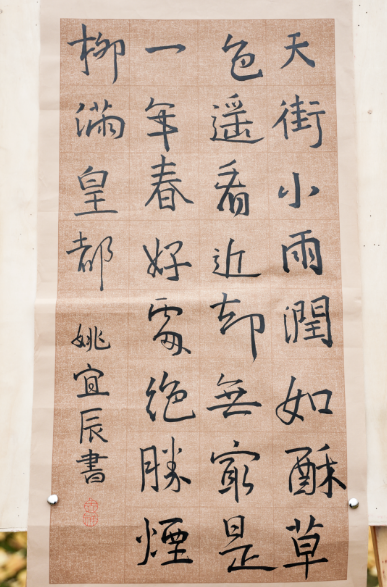 天街小雨潤如酥草
色遥看近却無最是
一年春好處絶勝煙
柳滿皇都
姚宜辰書